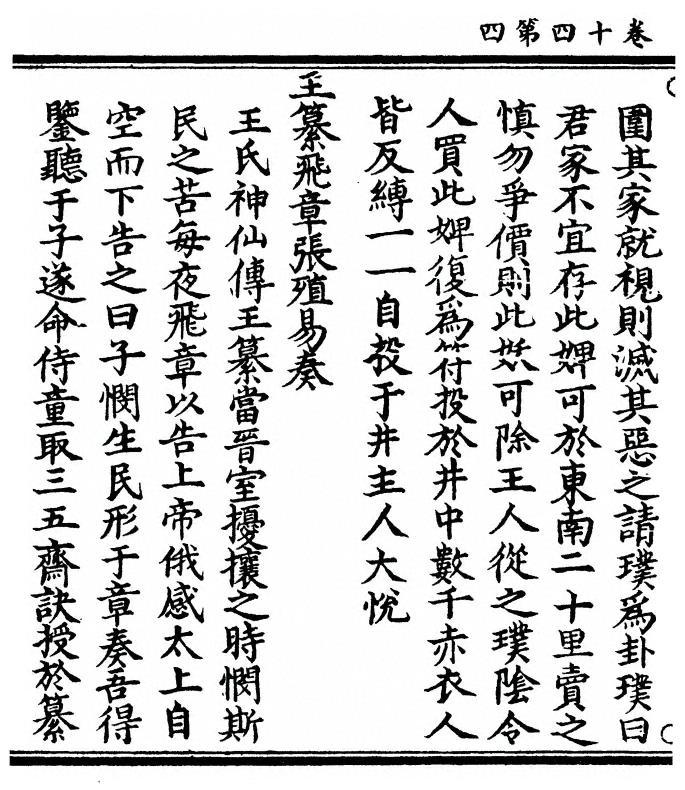 卷十四第四
圍其家就視則滅其惡之請璞爲卦璞曰
君家不宜存此婢可於東南二十里賣之
慎勿爭價則此妖可除王人從之璞陰令
人買此婢復爲符投於井中數千赤衣人
皆反縛一一自投于井主人大悅
王纂飛章張殖易奏
王氏神仙傳王纂當晉室擾攘之時憫斯
民之苦每夜飛章以告上帝俄感太上自
空而下告之曰子憫生民形于章奏吾得
鑒聽于子遂命侍童取三五齋訣授於纂